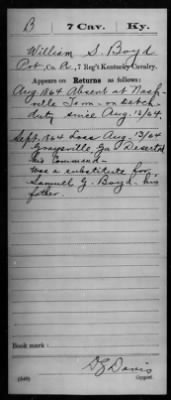 B | 7 Cav. | Ky.
William S. Boyd
Pvt, Co. A, 7 Reg't Kentucky Cavalry.
Appears on Returns as follows:
Aug. 1864 Absent at Nash-
ville Tenn - on Detch
duty since Aug. 13/64.
Sept. 1864 Loss Aug. 13/64
Graysville, Ga Deserted
his Command -
Was a substitute for
Samuel G. Boyd - his
father.
Book mark:
(546)
D G Davis
Copyist.